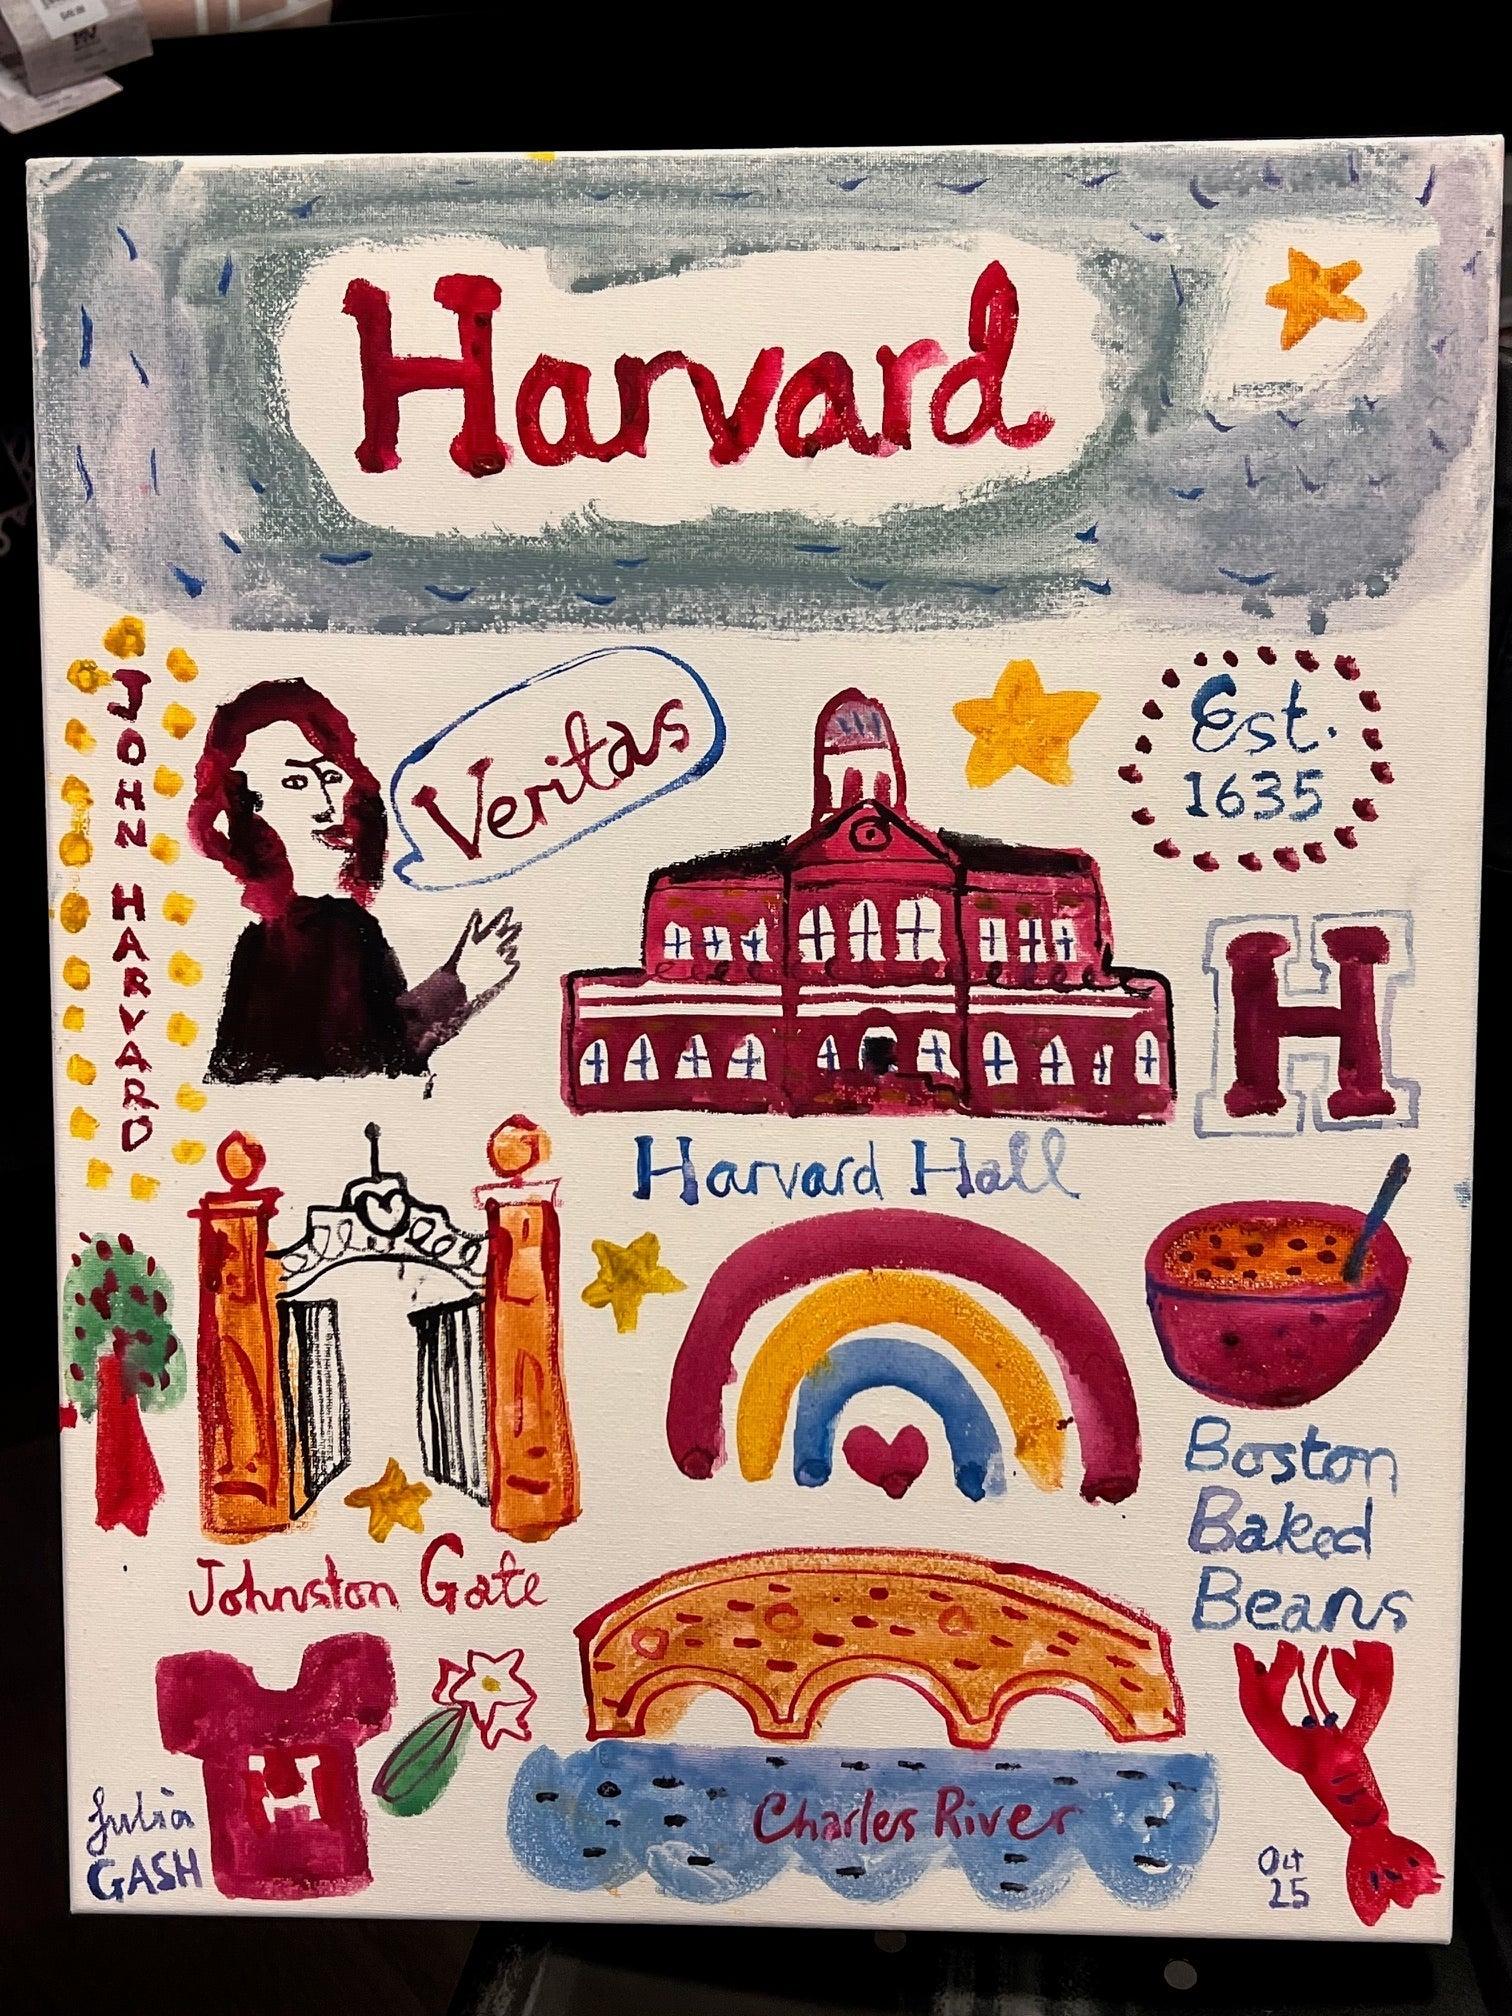 Harvard
JOHN HARVARD
Veritas
Est.
1635
H
Harvard Hall
Johnston Gate
Boston
Baked
Beans
H
Charles River
Julia
GASH
04
25